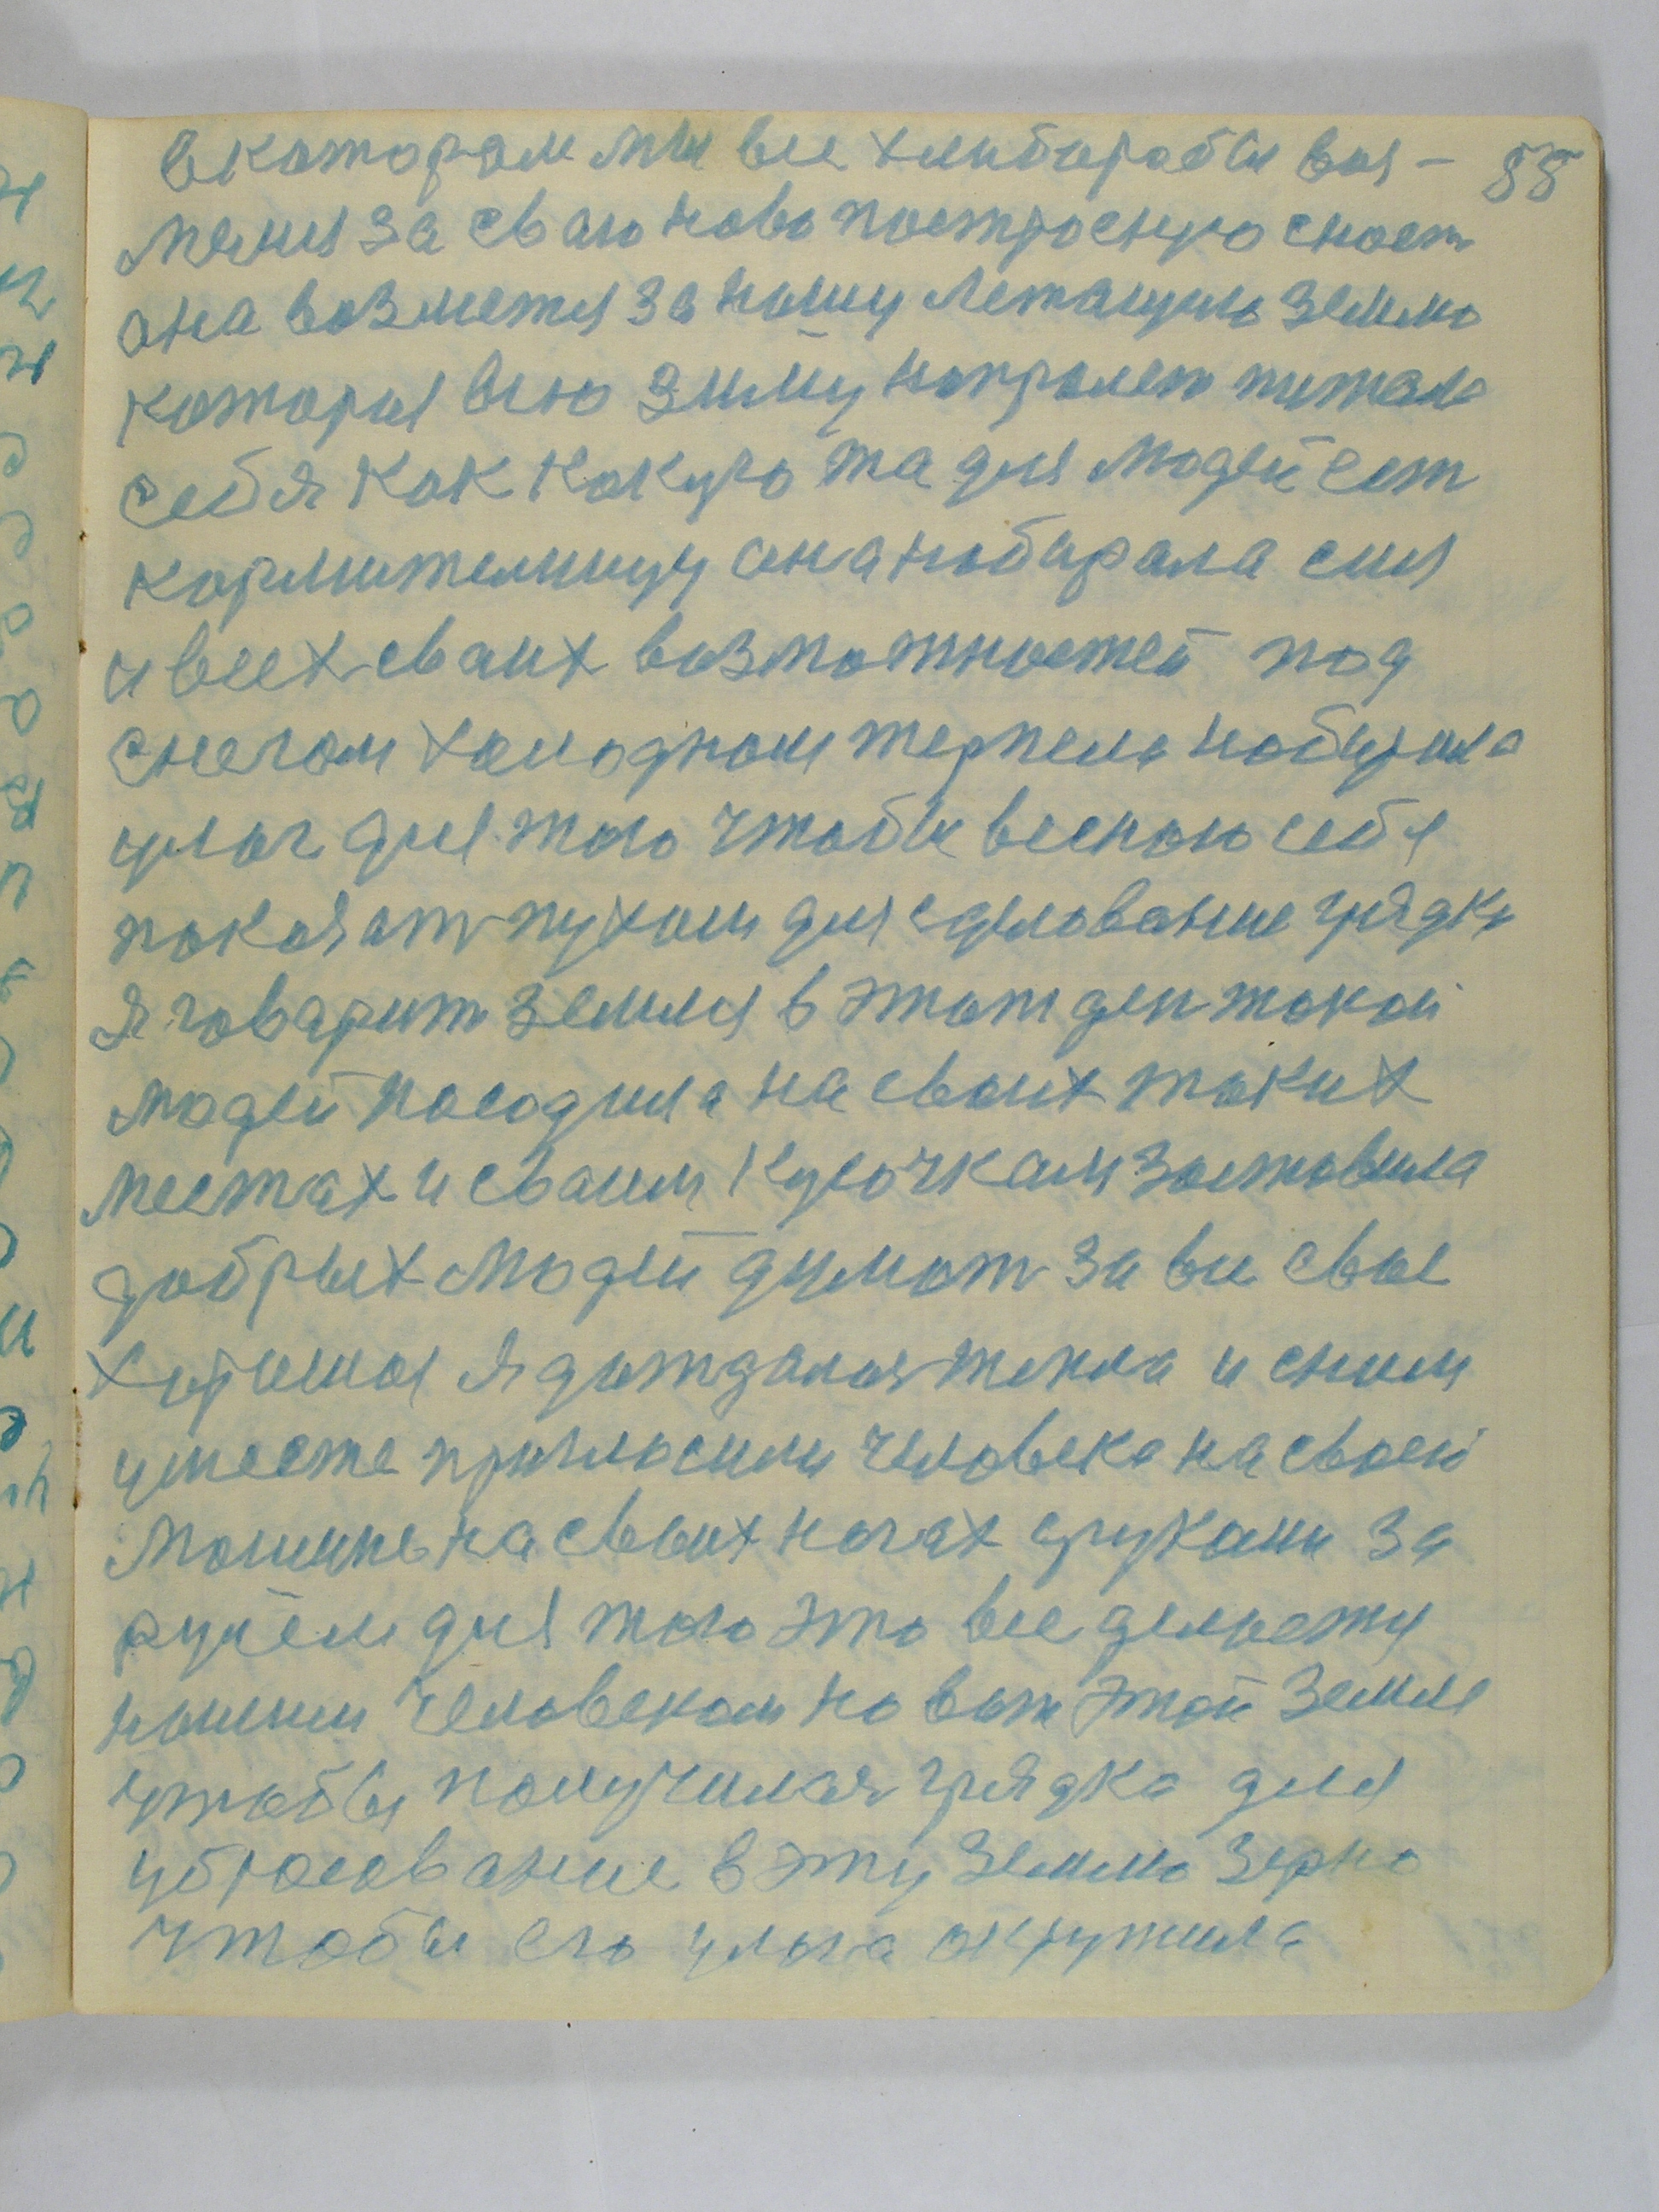 в котором мы все хлибаробы воз- 55
мемся за сваю ново построеную снаст
она возмется за нашу лежащую землю
которая всю зиму напролет питала
себя как какую та для людей ест
кормителницу она набирала сил
и всех сваих возможностей под
снегом холодном терпела набирала
улаг для того чтобы весною себя
показат пухом для сделование грядки
Я говарит земля в этот ден такой
людей посодила на своих таких
местах и сваим кусочкам заставила
добрых людей думат за вси свое
хорошоя я дождалас тепла и с ним
уместе пригласили человека на своей
машине на своих ногах с руками за
рулём для того это все делается
нашим человеком на вот этой земле
чтобы получилася грядка для
убросование в эту землю зерно
чтобы его улага окружила